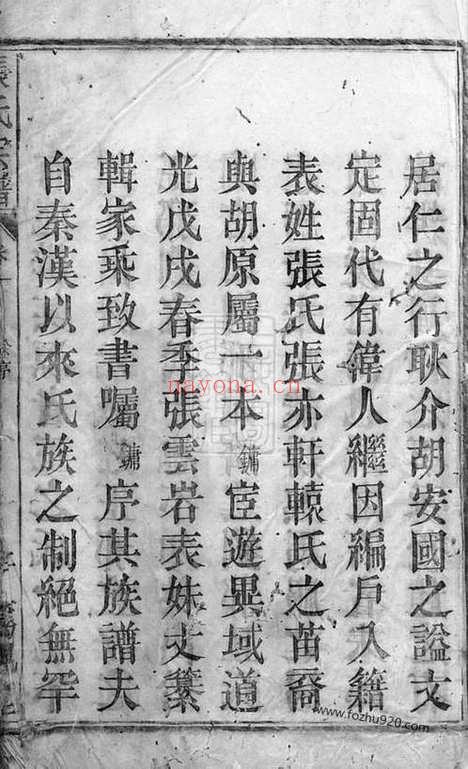 居仁之行耿介胡安國之謚文
定固代有偉人繼因編戶入籍
表姓張氏張亦軒轅氏之苗裔
與胡原屬一本鏞宦遊異域道
光戊戌春季張雲岩表妹丈纂
輯家乘致書囑鏞序其族譜夫
自秦漢以來氏族之制絕無罕
nayona.cn
www.fozhu920.com